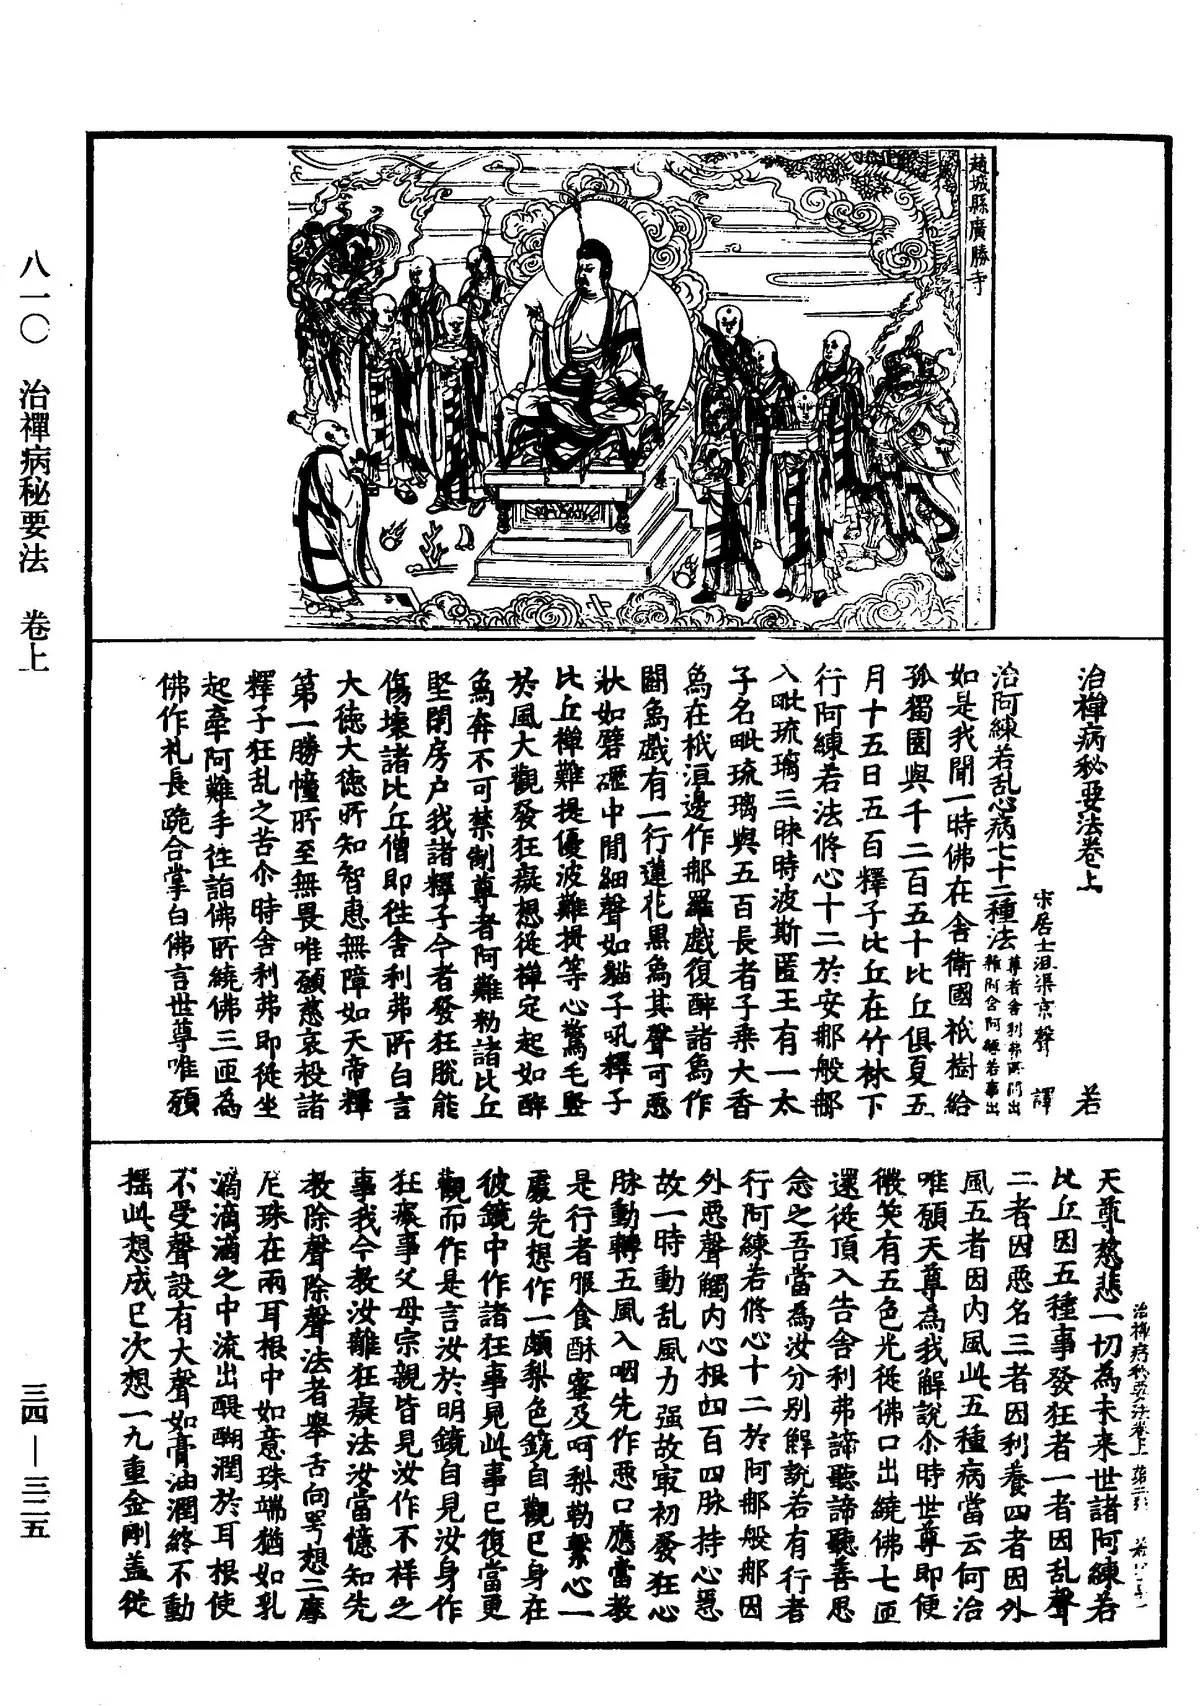 趙城縣廣勝寺
八一〇　治禪病秘要法　卷上
治禪病秘要法卷上　若
宋居士沮渠京聲　譯
治阿練若乱心病七十二種法尊者舍利弗所問出雜阿含阿練若事出
如是我聞一時佛在舍衛國祇樹給
孤獨園與千二百五十比丘俱夏五
月十五日五百釋子比丘在竹林下
行阿練若法修心十二於安那般那
入毗琉璃三昧時波斯匿王有一太
子名毗琉璃與五百長者子乘大香
為在祇洹邊作那羅戲復醉諸為作
鬪為戲有一行蓮花黑為其聲可惡
狀如礔礰中間細聲如貓子吼釋子
比丘禪難提優波難提等心驚毛竪
於風大觀發狂癡想從禪定起如醉
為奔不可禁制尊者阿難勑諸比丘
堅閉房户我諸釋子今者發狂脫能
傷壞諸比丘僧即往舍利弗所白言
大德大德所知智惠無障如天帝釋
第一勝幢所至無畏唯願慈哀救諸
釋子狂乱之苦尒時舍利弗即從坐
起牽阿難手往詣佛所繞佛三匝為
佛作礼長跪合掌白佛言世尊唯願
天尊慈悲一切為未來世諸阿練若
比丘因五種事發狂者一者因乱聲
二者因惡名三者因利養四者因外
風五者因内風此五種病當云何治
唯願天尊為我解說尒時世尊即便
微笑有五色光從佛口出繞佛七匝
還從頂入告舍利弗諦聽諦聽善思
念之吾當為汝分別解說若有行者
行阿練若修心十二於阿那般那因
外惡聲觸内心根四百四脉持心急
故一時動乱風力强故寂初發狂心
脉動轉五風入咽先作惡口應當教
是行者服食酥蜜及呵梨勒繫心一
處先想作一頗梨色鏡自觀已身在
彼鏡中作諸狂事見此事已復當更
觀而作是言汝於明鏡自見汝身作
狂癡事父母宗親皆見汝作不祥之
事我今教汝離狂癡法汝當憶知先
教除聲除聲法者舉舌向腭想二摩
尼珠在兩耳根中如意珠端猶如乳
滴滴滴之中流出醍醐潤於耳根使
不受聲設有大聲如膏油潤終不動
搖此想成已次想一九重金剛盖從
治禪病秘要法卷上
三四—三二五